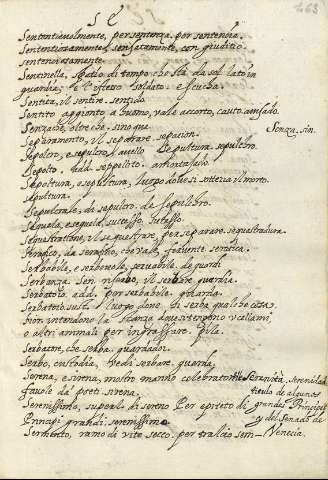 S E
163
Sententievolmente, per sentenza, per sentencia.
Sententiosamente, sensatamente, con giuditio
sentenciosamente.
Sentinella, spatio di tempo che sta da sol dato in
guardia; e l'istesso soldato: escucha.
Sentire, il sentire. sentido.
Sentito aggionto a huomo, vale accorto, cauto. avisado.
Senzache, oltre che. sin que.
Senza. sin.
Separamento, il separare. separacion.
Sepolcro, e sepulcro, l'avello. sepultura, sepulcro.
Sepolto. add. seppelito. enterrado.
Sepoltura, e sepultura, luogo dove si sotterra il morto.
sepultura.
Sepulcrale, di sepulcro. de sepulcro.
Sequela, e seguela, sucesso.
Sequestratione, il sequestrare, per separare. sequestradura.
Serafico, da serafino, che vale, fervente. serafico.
Serbabile, e serbevole, servabile. de guardar
Serbanza. Ser. riserbo, il serbare. guardia.
Serbatoio. add. per serbabile.
Serbatoio sust. luogo dove si serba qualche cosa,
hor intendono la stanza dove tengono uccellami,
o altri animali per ingrassare.
Serbatore, che serba, guardador.
Serbo, custodia. Vedi serbare. guarda.
Serena, e sirena, mostro marino celebrato nelle
favole da poeti. sirena.
Serenità, serenidad
titulo de algunos
grandes Principes
y del Senado de
Venecia.
Serenissimo, superl. di sereno. Per epiteto di
Principi grandi. serenissimo.
Sermento, ramo di vite secco. per tralcio sem